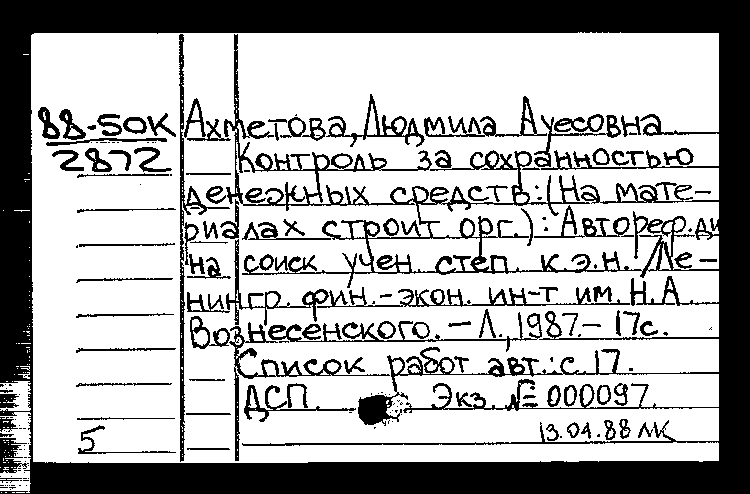 88-50К Ахметова, Людмила Ауесовна
2872 Контроль за сохранностью
денежных средств: (На мате-
риалах строит. орг.): Автореф. ди
на соиск. учен. степ. к.э.н. / Ле-
нингр. фин.-экон. ин-т им. Н.А.
Вознесенского. - Л., 1987. - 17с.
Список работ авт.: с. 17.
ДСП. Экз. № 000097.
5 13.04.88 ЛК